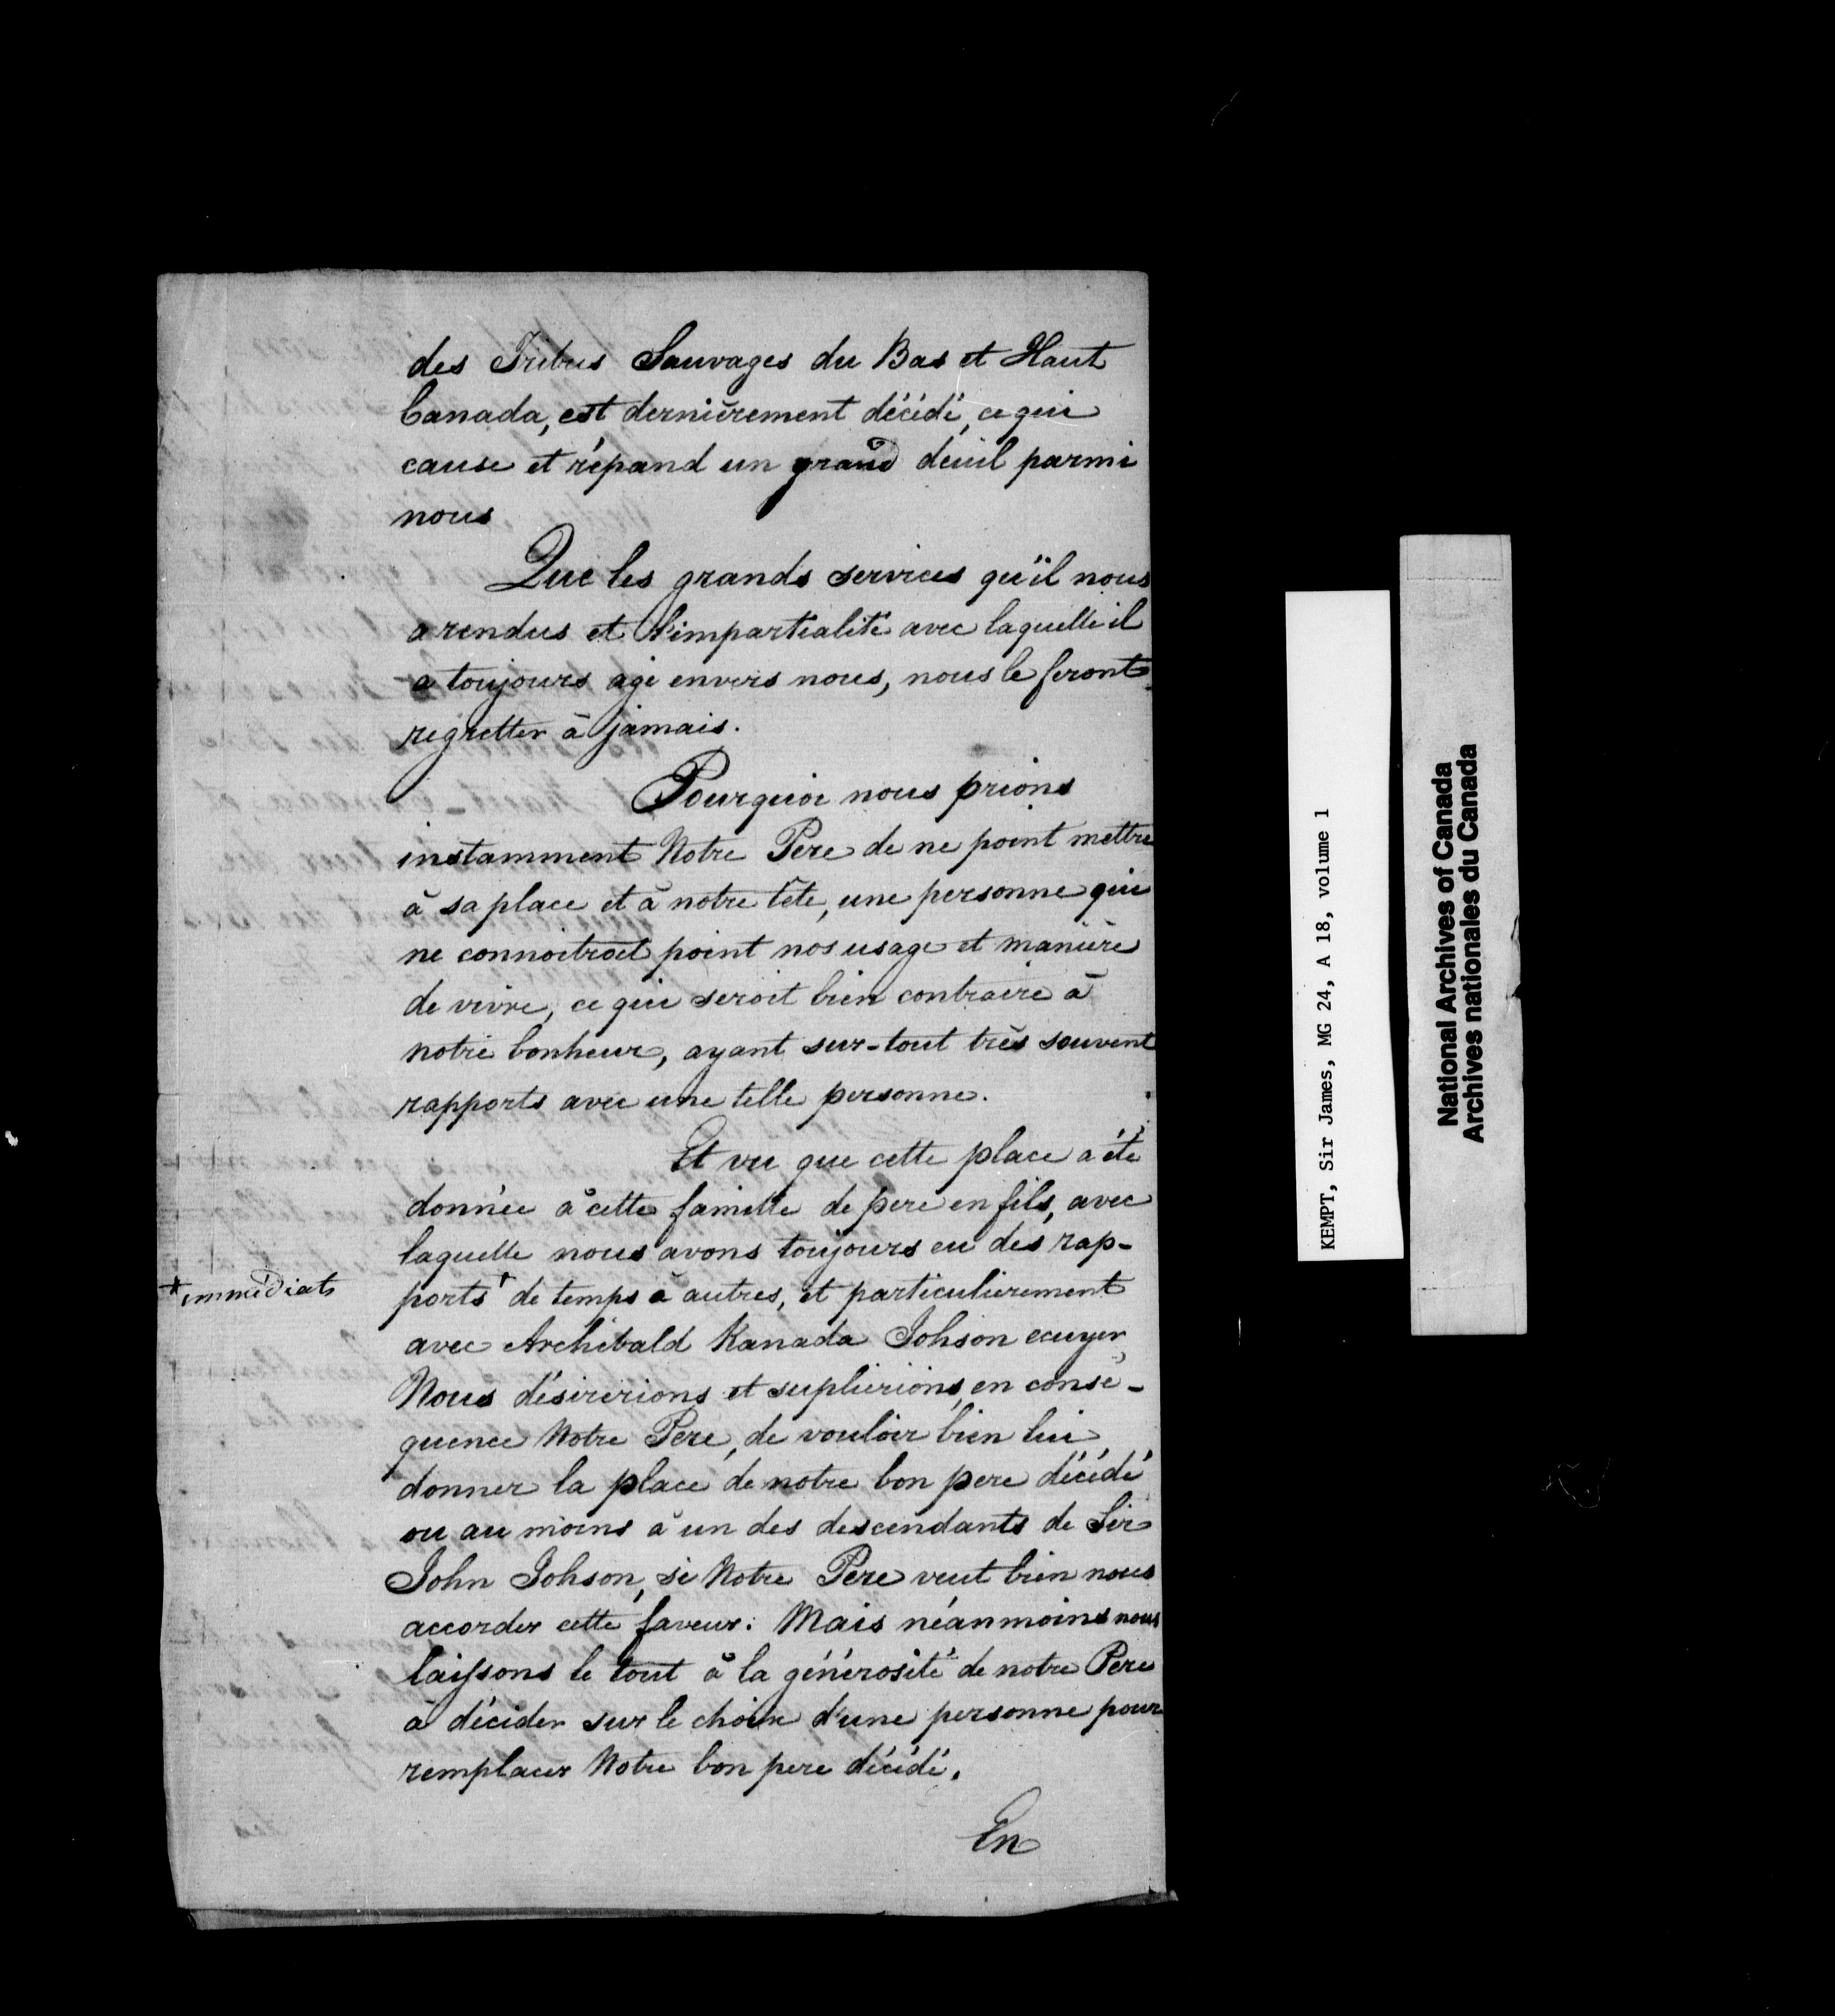 des Tribus Sauvages du Bas et Haut
Canada, est dernièrement décédé, ce qui
cause et répand un grand déuil parmi
nous
Que les grands services qu'il nous
a rendus et l'impartialité avec laquelle il
a toujours agi envers nous, nous le feront
regretter à jamais.
Pourquoi nous prions
instamment Notre Pere de ne point mettre
à sa place et à notre tête, une personne qui
ne connoitroit point nos usage et manière
de vivre, ce qui seroit bien contraire à
notre bonheur, ayant sur-tout très souvent
rapports avec une telle personne.
Et vu que cette place a été
donnée à cette famille de pere en fils, avec
laquelle nous avons toujours eu des rap-
+immédiats
ports+ de temps à autres, et particulierement
avec Archibald Kanada Johson ecuyer,
Nous désirerions et suplierions, en consé-
quence Notre Pere, de vouloir bien lui
donner la place de notre bon pere décédé
ou au moins à un des descendants de Sir
John Johson, si Notre Pere veut bien nous
accorder cette faveur. Mais néanmoins nous
laissons le tout à la générosité de notre Pere
à décider sur le choix d'une personne pour
remplacer Notre bon pere décédé.
En
KEMPT, Sir James, MG 24, A 18, volume 1
National Archives of Canada
Archives nationales du Canada